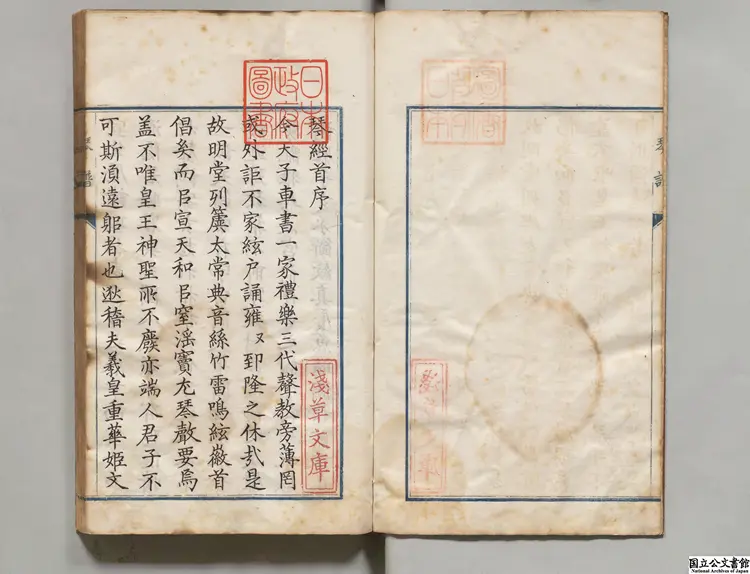 琴經首序
今天子車書一家禮樂三代聲教旁薄罔
或外詎不家絃户誦雍〻郅隆之休㢤是
故明堂列簴太常典音絲竹雷鳴絃徽首
倡矣而㠯宣天和㠯窒滛竇尤琴𣪊要焉
盖不唯皇王神聖𠩄不廢亦端人君子不
可斯湏遠躳者也逖稽夫羲皇重華姬文
日本政府圖書
淺草文庫
琴譜
国立公文書館
National Archives of Japan